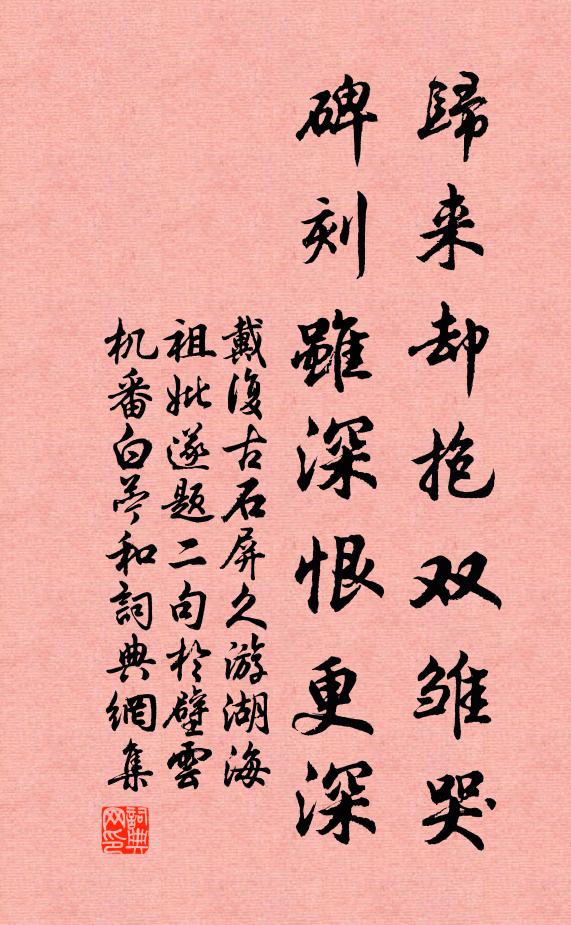 歸来却抱双雏哭
碑刻雖深恨更深
戴復古石屏久游湖海
祖妣遂题二句於壁雲
机番白苎和詞典網集
詞典网印